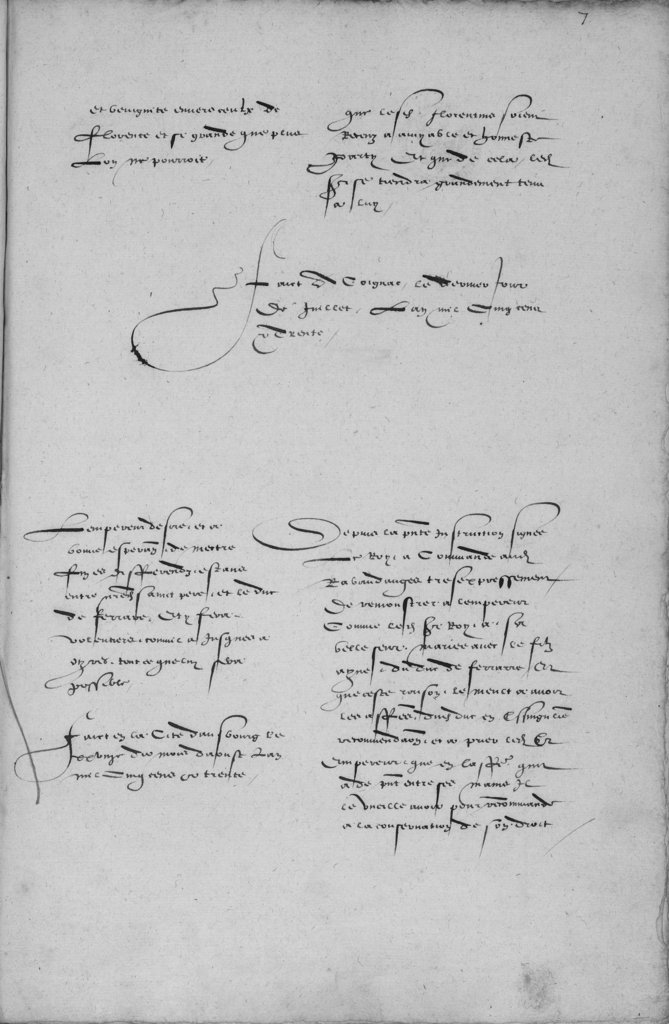 7
et benignite envers ceulx de
Florence et se grande que plus
Lon ne pourroit
que lesd. florentins soient
Receuz a amyable et honneste
party Et que de cela led.
Sr se tiendra grandement tenu
a luy
Faict a Coignac, le dernier Jour
De Juillet, Lan mil Cinq cens
Trente
Lempereur desire et a
bonne esperan de mectre
fin es differendz estans
entre nred. sainct pere, et le duc
de ferrare, Et y fera
voluntiers comme a Jusques a
oyres, tout ce que luy sera
possible
Faict en la Cite dausbourg le
mois daoust Lan
mil Cinq cens et trente
Depuis la pnte Instruction signee
Le Roy a Commande aud.
Rabaudanges tres expressement
De remonstrer a lempereur
Comme led. Sr Roy a sa
belle seur, mariee avec le filz
aysne du duc de ferrare Et
que ceste raison le meult a avoir
les affres dud. duc en singuliere
recommendaon, et a prier led. Sr
Empereur que en laffre qui
a de pnt entre ses mains Il
le vueille avoir pour recommande
a la conservation de son droit